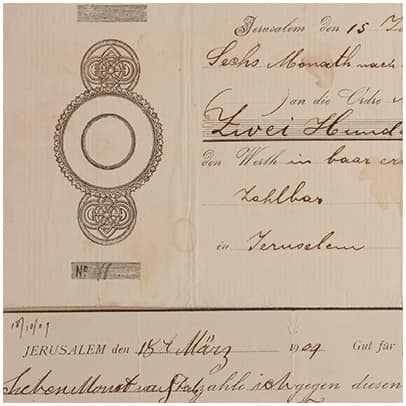 Jerusalem den 15
Sechs Monath nach
( ) an die Ordre
Zwei Hund
den Werth in baar er
Zahlbar
in Jerusalem
No 11.
18/10/09
JERUSALEM den 18t März 1909 Gut für
Sieben Monat zahle ich gegen diesen